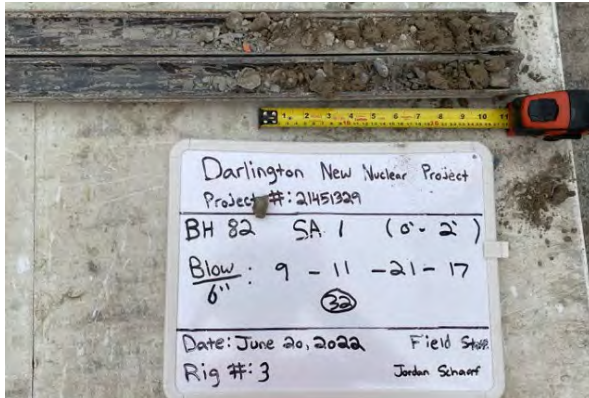 1 2 3 4 5 6 7 8 9 10 11
Darlington New Nuclear Project
Project #: 21451329
BH 82 SA 1 (0' - 2')
Blow/6" : 9 - 11 - 21 - 17
32
Date: June 20, 2022 Field
Rig #: 3 Jordan